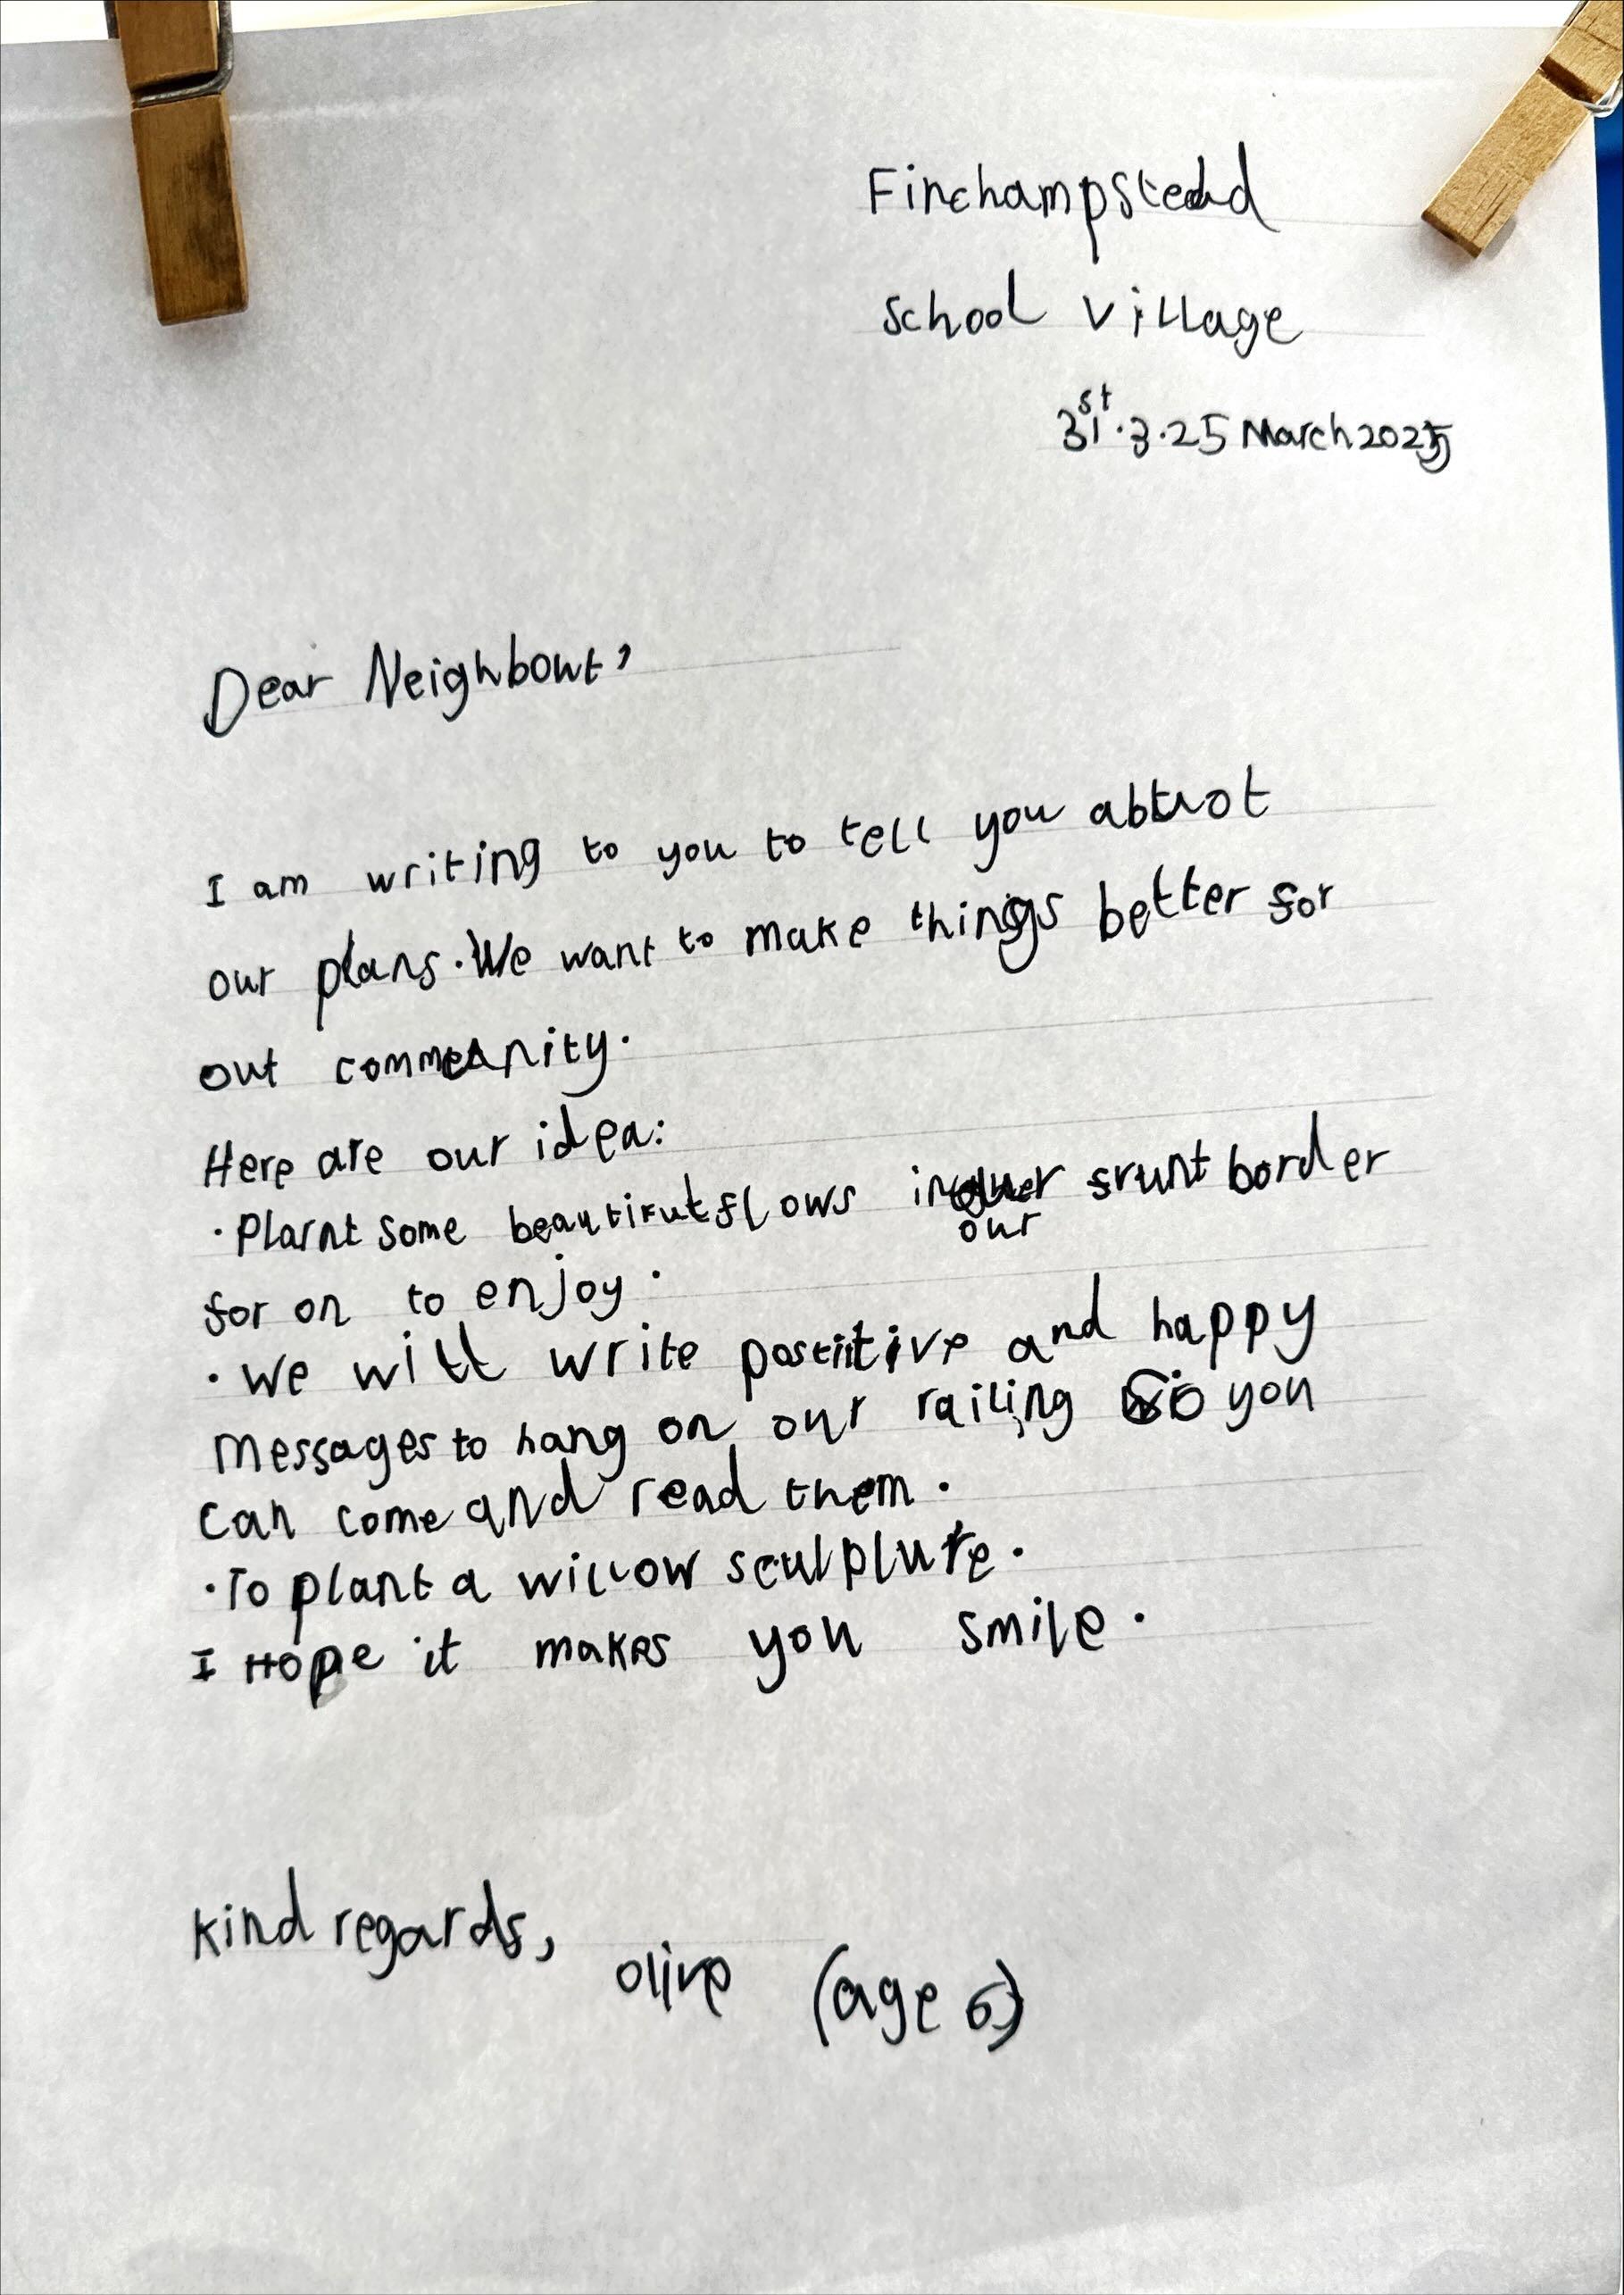 Finchampstead
School Village
31st.3.25 March 2025
Dear Neighbour,
I am writing to you to tell you about
our plans. We want to make things better for
out community.
Here are our idea:
· Plarnt some beautiful flows in our frunt border
for on to enjoy.
· We will write postitive and happy
Messages to hang on our railing so you
can come and read them.
· To plant a willow sculplure.
I Hope it makes you smile.
Kind regards,
Olive (age 6)